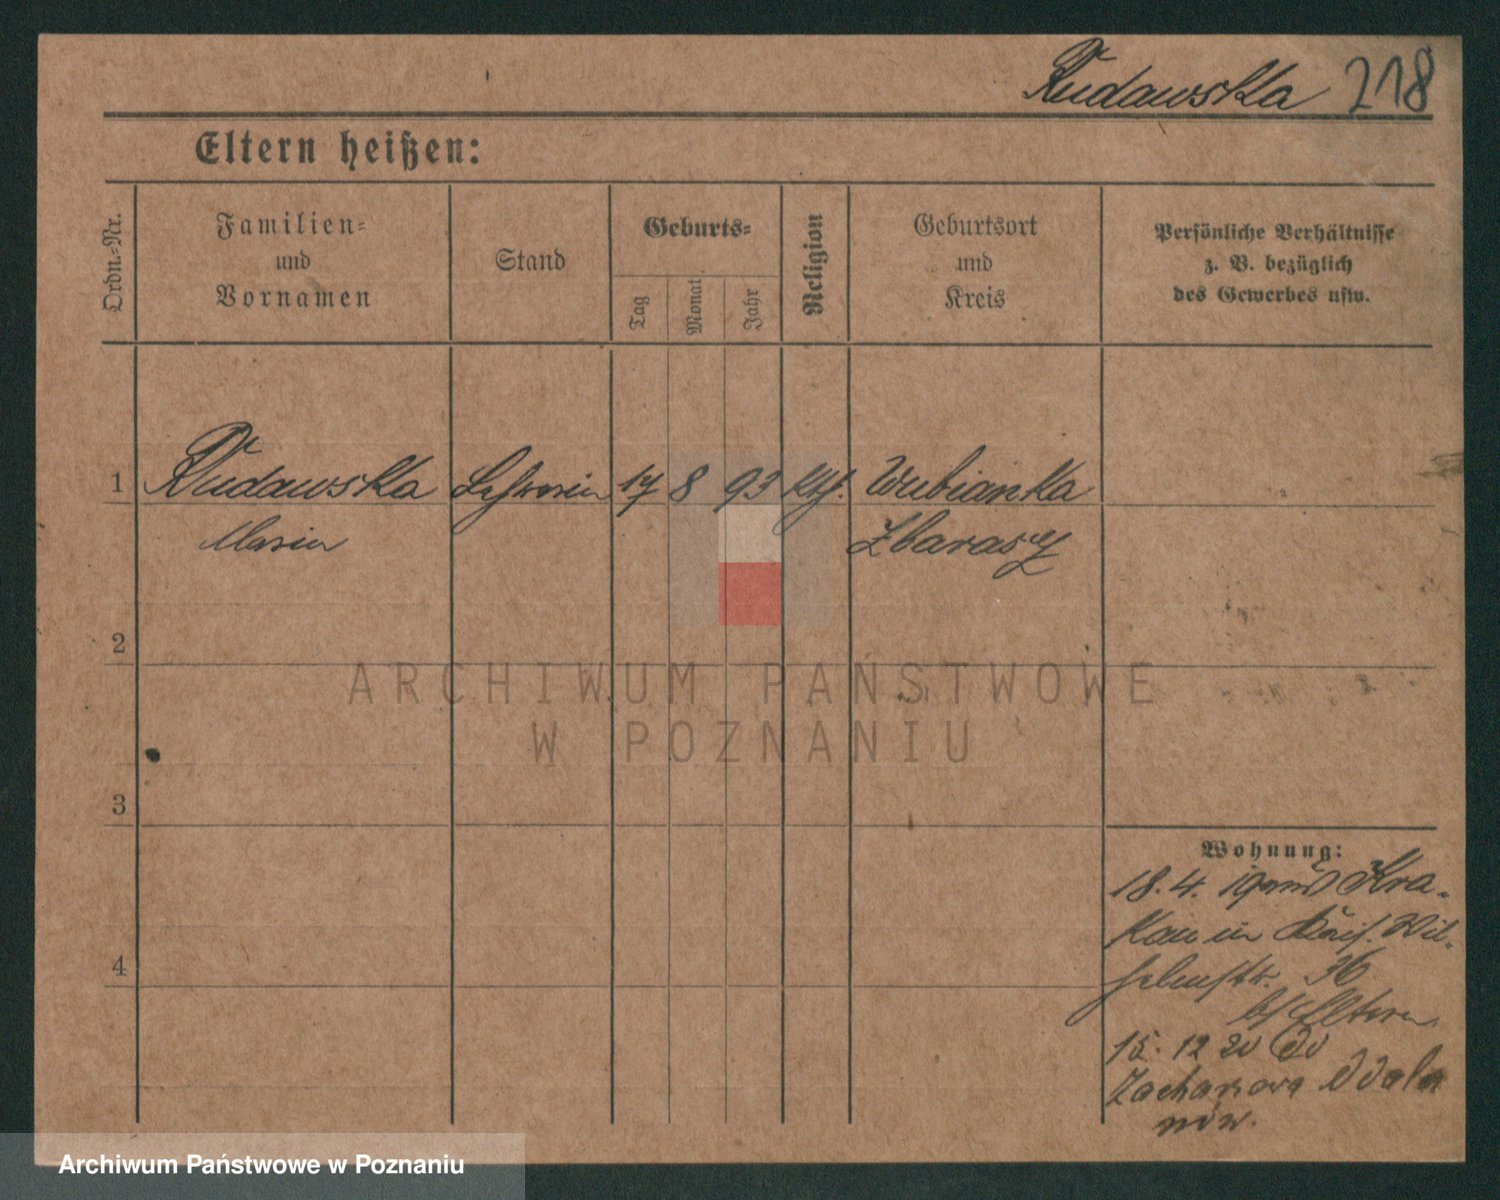 Rudawska 218
Eltern heißen:
Ordn.-Nr.
Familien-
und
Vornamen
Stand
Geburts-
Tag
Monat
Jahr
Religion
Geburtsort
und
Kreis
Persönliche Verhältnisse
z. B. bezüglich
des Gewerbes usw.
1 Rudawska 17 8 93 kth. Wubianka
Maria Zbarasz
2
3
4
Wohnung:
18. 4. Kra-
kau in Kais. Wil-
helmstr. 36
b/ Eltern
15. 12 20
Zacharzowa Odola
nów.
ARCHIWUM PAŃSTWOWE
W POZNANIU
Archiwum Państwowe w Poznaniu